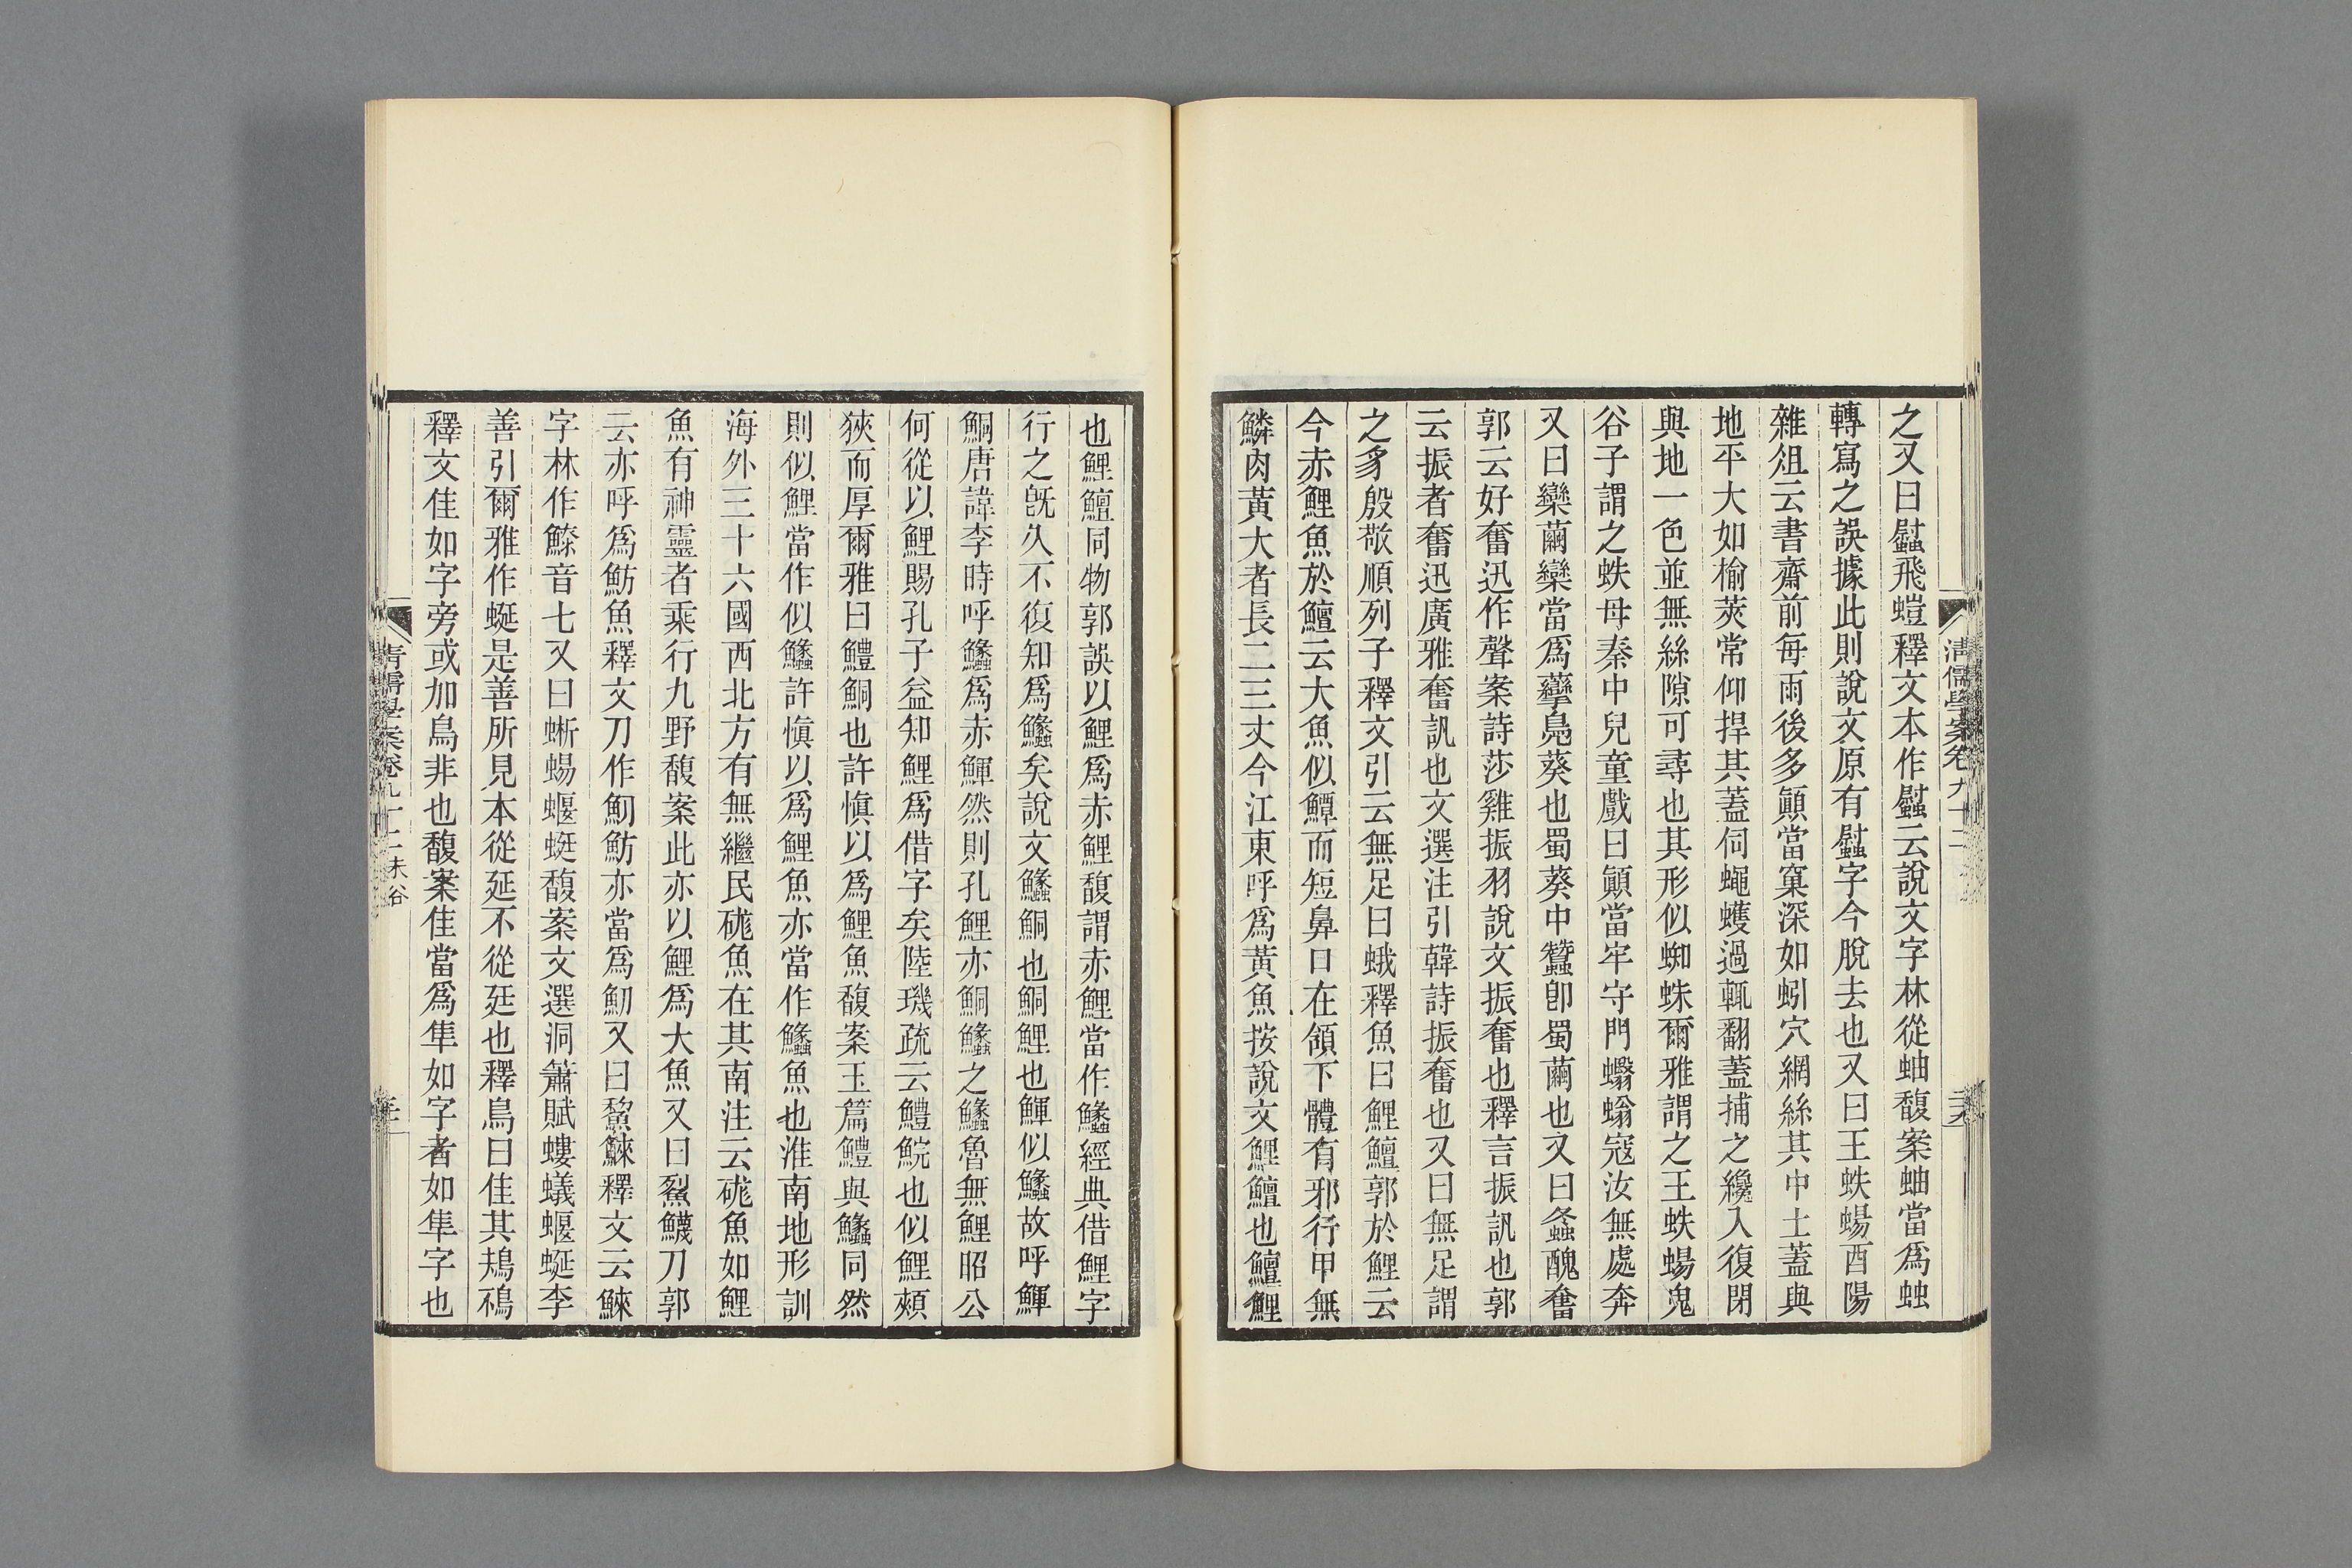 之又曰䘇飛螘釋文本作䘇云說文字林從䖵馥案䖵當爲蚰
轉寫之誤據此則說文原有䘇字今脫去也又曰王蛈蝪酉陽
雜俎云書齋前每雨後多顚當窠深如蚓穴網絲其中土蓋與
地平大如榆莢常仰捍其蓋伺蠅蠖過輒翻蓋捕之纔入復閉
與地一色並無絲隙可尋也其形似蜘蛛爾雅謂之王蛈蝪鬼
谷子謂之蛈母秦中兒童戲曰顚當牢守門蠮螉寇汝無處奔
又曰欒繭欒當爲虊鳧葵也蜀葵中蠶卽蜀繭也又曰螽醜奮
郭云好奮迅作聲案詩莎雞振羽說文振奮也釋言振訊也郭
云振者奮迅廣雅奮訊也文選注引韓詩振奮也又曰無足謂
之豸殷敬順列子釋文引云無足曰蛾釋魚曰鯉鱣郭於鯉云
今赤鯉魚於鱣云大魚似鱏而短鼻口在頷下體有邪行甲無
鱗肉黃大者長二三丈今江東呼爲黃魚按說文鯉鱣也鱣鯉
也鯉鱣同物郭誤以鯉爲赤鯉馥謂赤鯉當作鱺經典借鯉字
行之旣久不復知爲鱺矣說文鱺鮦也鮦鯉也鯶似鱺故呼鯶
鮦唐諱李時呼鱺爲赤鯶然則孔鯉亦鮦鱺之鱺魯無鯉昭公
何從以鯉賜孔子益知鯉爲借字矣陸璣疏云鱧鯇也似鯉頰
狹而厚爾雅曰鱧鮦也許愼以爲鯉魚馥案玉篇鱧與鱺同然
則似鯉當作似鱺許愼以爲鯉魚亦當作鱺魚也淮南地形訓
海外三十六國西北方有無繼民硥魚在其南注云硥魚如鯉
魚有神靈者乘行九野馥案此亦以鯉爲大魚又曰鮤鱴刀郭
云亦呼爲魛魚釋文刀作魛魛亦當爲魛又曰鯬鯠釋文云鯠
字林作鰶音七又曰蜥蜴蝘蜓馥案文選洞簫賦螻蟻蝘蜒李
善引爾雅作蜒是善所見本從延不從廷也釋鳥曰隹其鳺鴀
釋文隹如字旁或加鳥非也馥案隹當爲隼如字者如隼字也
清儒學案卷九十二
清儒學案卷九十二 未谷